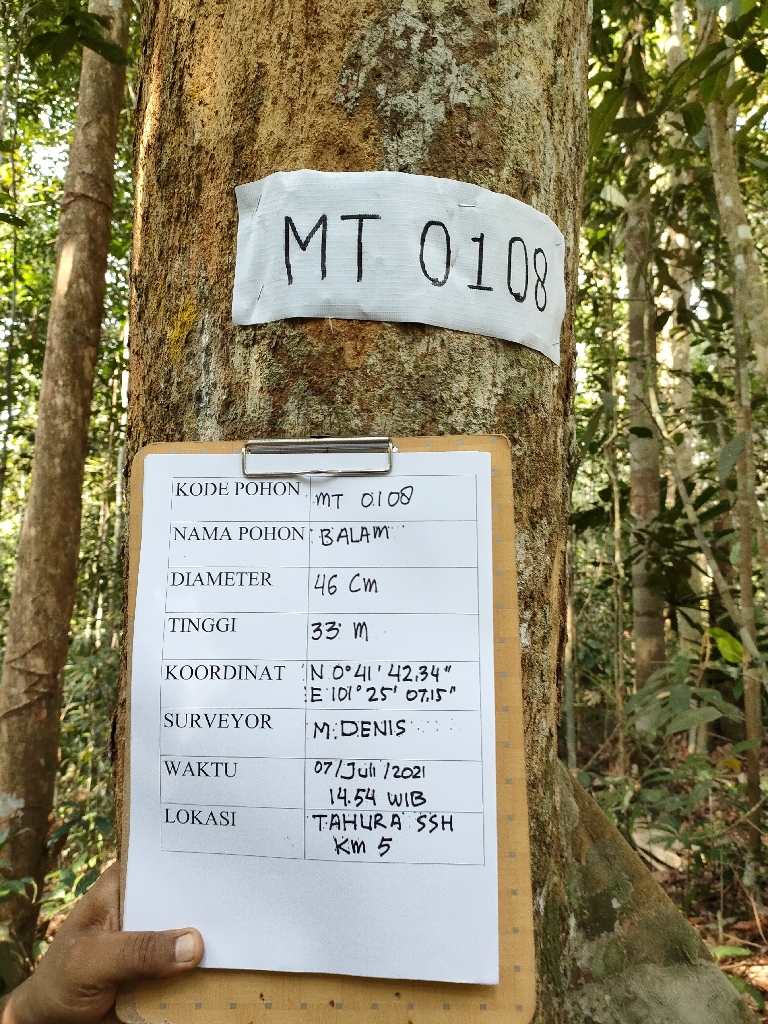 MT 0108
KODE POHON : MT 0108
NAMA POHON : BALAM
DIAMETER 46 Cm
TINGGI 33 M
KOORDINAT N 0° 41' 42.34"
: E 101° 25' 07.15"
SURVEYOR M. DENIS
WAKTU 07/Juli/2021
14.54 WIB
LOKASI TAHURA SSH
Km 5